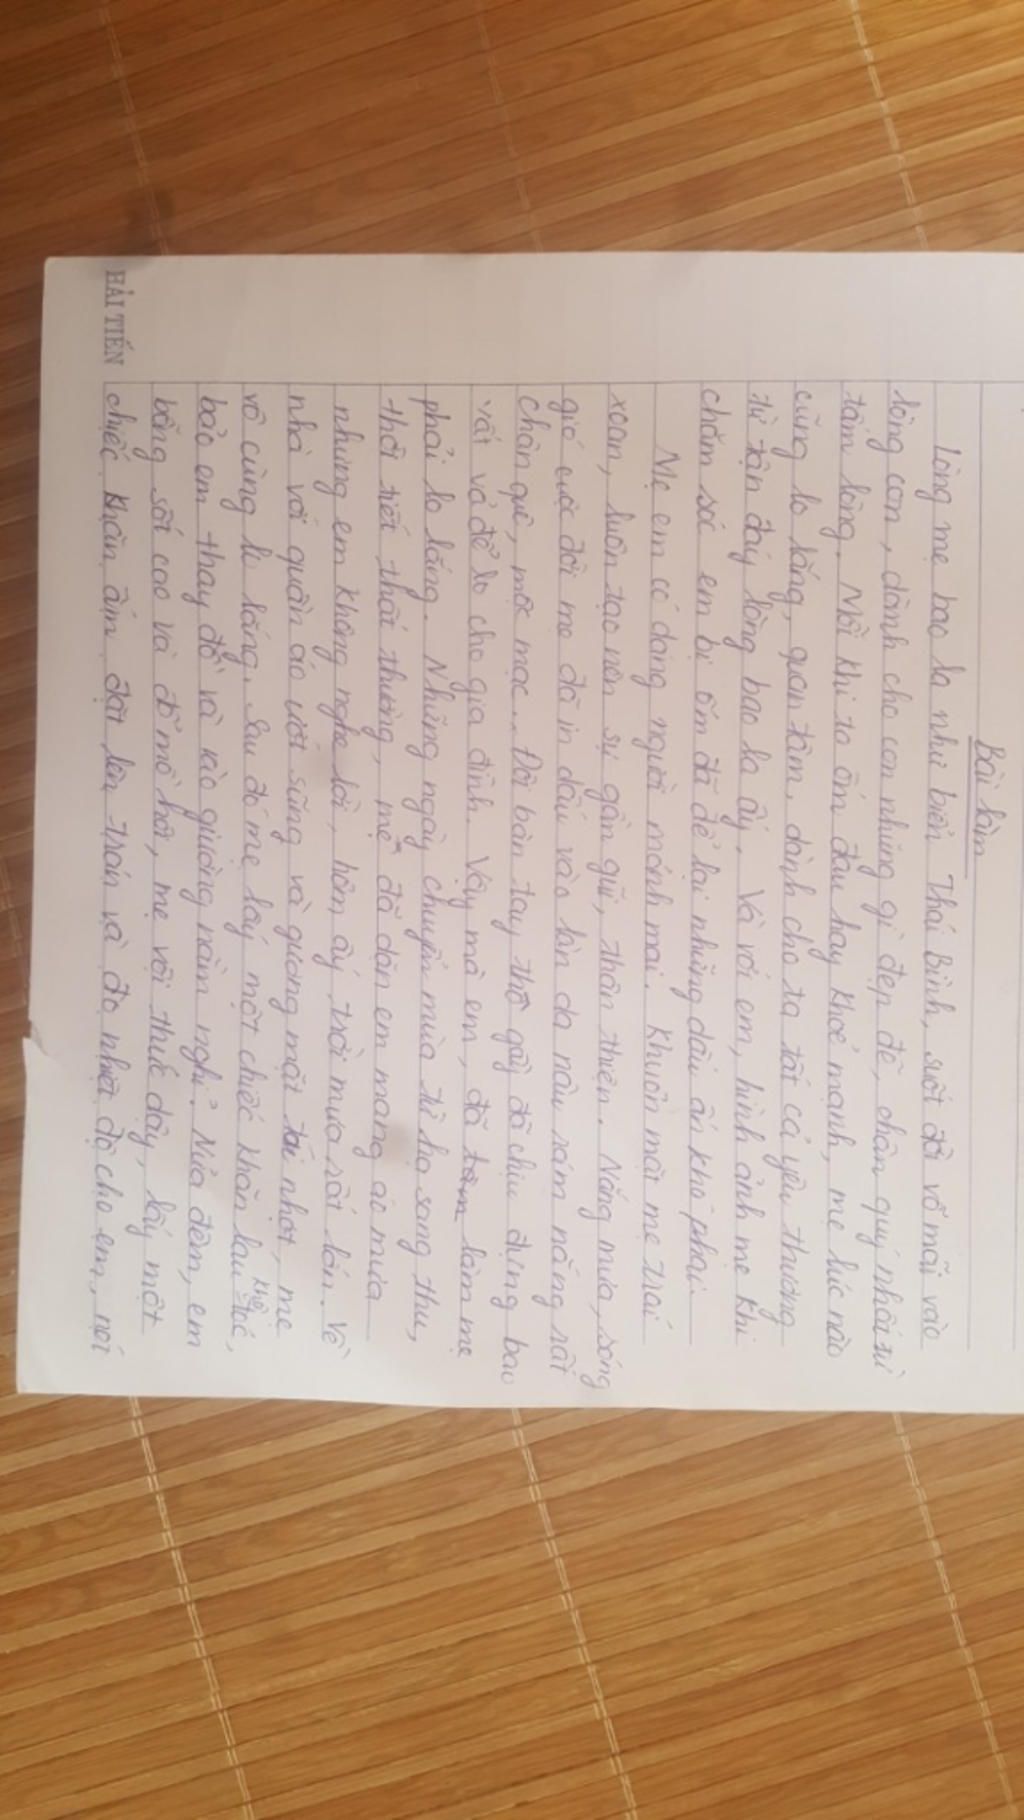 Bài làm
Lòng mẹ bao la như biển Thái Bình, suốt đời vỗ mãi vào
lòng con, dành cho con những gì đẹp đẽ, chân quý nhất từ
tấm lòng. Mỗi khi ta ốm đau hay khoẻ mạnh, mẹ lúc nào
cũng lo lắng, quan tâm, dành cho ta tất cả yêu thương
từ tận đáy lòng bao la ấy. Và với em, hình ảnh mẹ khi
chăm sóc em bị ốm đã để lại những dấu ấn khó phai.
Mẹ em có dáng người mảnh mai. Khuôn mặt mẹ trái
xoan, luôn tạo nên sự gần gũi, thân thiện. Nắng mưa, sóng
gió cuộc đời mẹ đã in dấu vào làn da nâu sám nắng rất
chân quê, mộc mạc... Đôi bàn tay thô gầy đã chịu đựng bao
vất vả để lo cho gia đình. Vậy mà em, đã làm mẹ
phải lo lắng. Những ngày chuyển mùa từ hạ sang thu,
thời tiết thất thường, mẹ đã dặn em mang áo mưa
nhưng em không nghe lời, hôm ấy trời mưa rất lớn. Về
nhà với quần áo ướt sũng và gương mặt tái nhợt, mẹ
vô cùng lo lắng. Sau đó mẹ lấy một chiếc khăn lau khô tóc,
bảo em thay đồ và vào giường nằm nghỉ. Nửa đêm, em
bỗng sốt cao và đổ mồ hôi, mẹ vội thức dậy, lấy một
chiếc khăn ấm đặt lên trán và đo nhiệt độ cho em, nơi
HẢI TIẾN